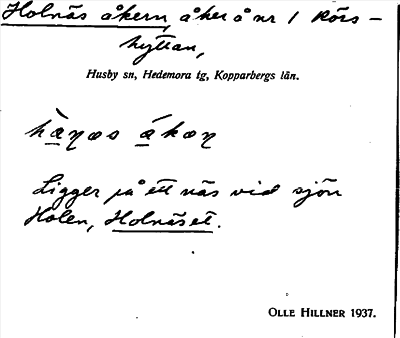 Holnäs åkern, åker å nr 1 Rörs-
hyttan,
Husby sn, Hedemora tg, Kopparbergs län.
Ligger på ett näs vid sjön
Holen, Holnäset.
OLLE HILLNER 1937.